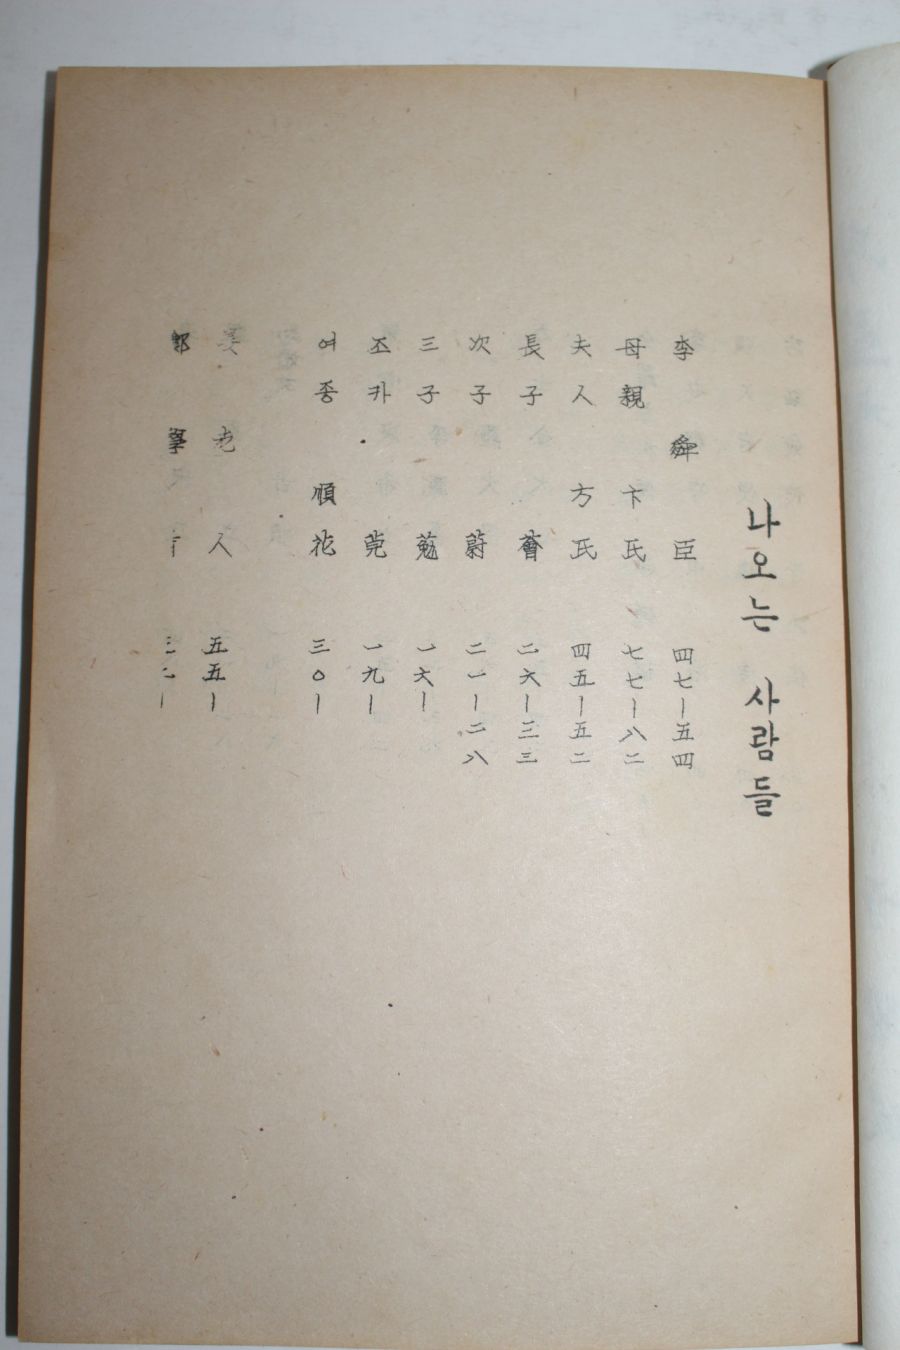 나오는 사람들
李舜臣 四七—五四
母親 卞氏 七七—八二
夫人 方氏 四五—五二
長子 薈 二六—三三
次子 蔚 二一—二八
三子 葂 一六—
조카 莞 一九—
여종 順花 三〇—
老人 五五—
郭